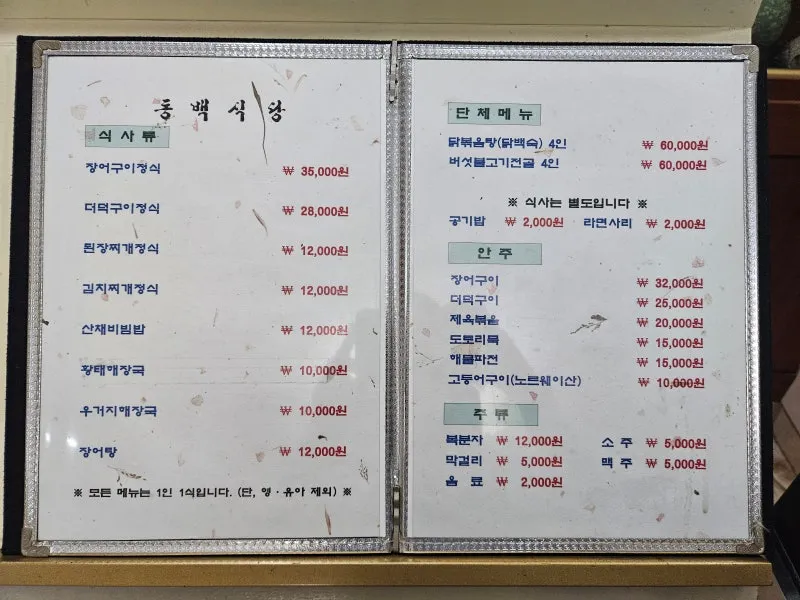 동백식당
식사류
장어구이정식 ₩ 35,000원
더덕구이정식 ₩ 28,000원
된장찌개정식 ₩ 12,000원
김치찌개정식 ₩ 12,000원
산채비빔밥 ₩ 12,000원
황태해장국 ₩ 10,000원
우거지해장국 ₩ 10,000원
장어탕 ₩ 12,000원
※ 모든 메뉴는 1인 1식입니다. (단, 영·유아 제외) ※
단체메뉴
닭볶음탕(닭백숙) 4인 ₩ 60,000원
버섯불고기전골 4인 ₩ 60,000원
※ 식사는 별도입니다 ※
공기밥 ₩ 2,000원 라면사리 ₩ 2,000원
안주
장어구이 ₩ 32,000원
더덕구이 ₩ 25,000원
제육볶음 ₩ 20,000원
도토리묵 ₩ 15,000원
해물파전 ₩ 15,000원
고등어구이(노르웨이산) ₩ 10,000원
주류
복분자 ₩ 12,000원 소주 ₩ 5,000원
막걸리 ₩ 5,000원 맥주 ₩ 5,000원
음료 ₩ 2,000원